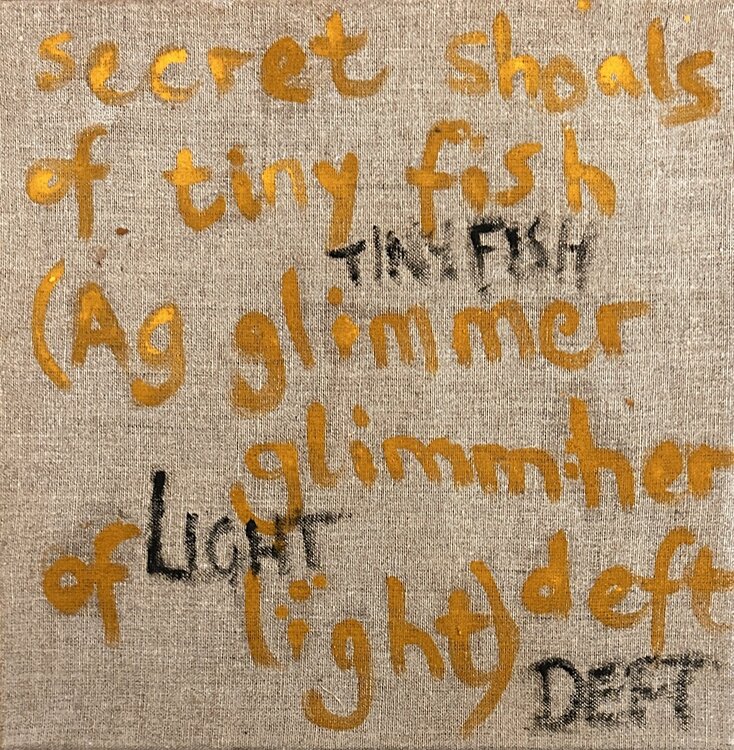 secret shoals
of tiny fish
TINY FISH
(Ag glimmer
glimmher
LIGHT
of lïght) deft
DEFT